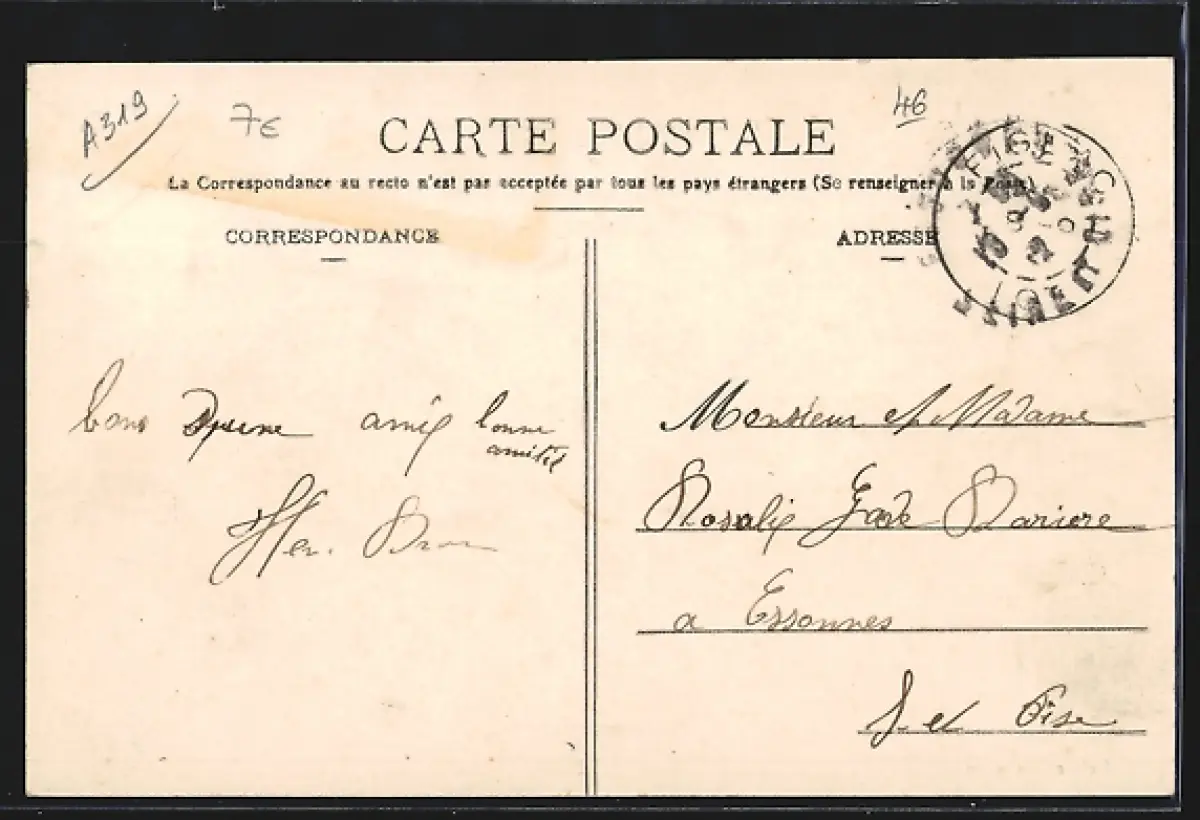 A319
7€
46
CARTE POSTALE
La Correspondance au recto n'est pas acceptée par tous les pays étrangers (Se renseigner à la Poste)
CORRESPONDANCE
ADRESSE
bons amis bonne
amitié
Monsieur et Madame
Rosalie Garde Bariere
a Essonnes
S. et Oise